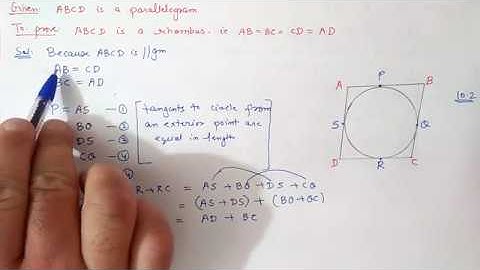 Given: ABCD is a parallelogram
To prove: ABCD is a rhombus. ie AB = BC = CD = AD
Sol: Because ABCD is ||gm
AB = CD
BC = AD
P = AS — ①
BQ — ②
DS — ③
CQ — ④
tangents to circle from
an exterior point are
equal in length
R + RC = AS + BQ + DS + CQ
= (AS + DS) + (BQ + QC)
= AD + BC
A P B
S Q
D R C
10.2